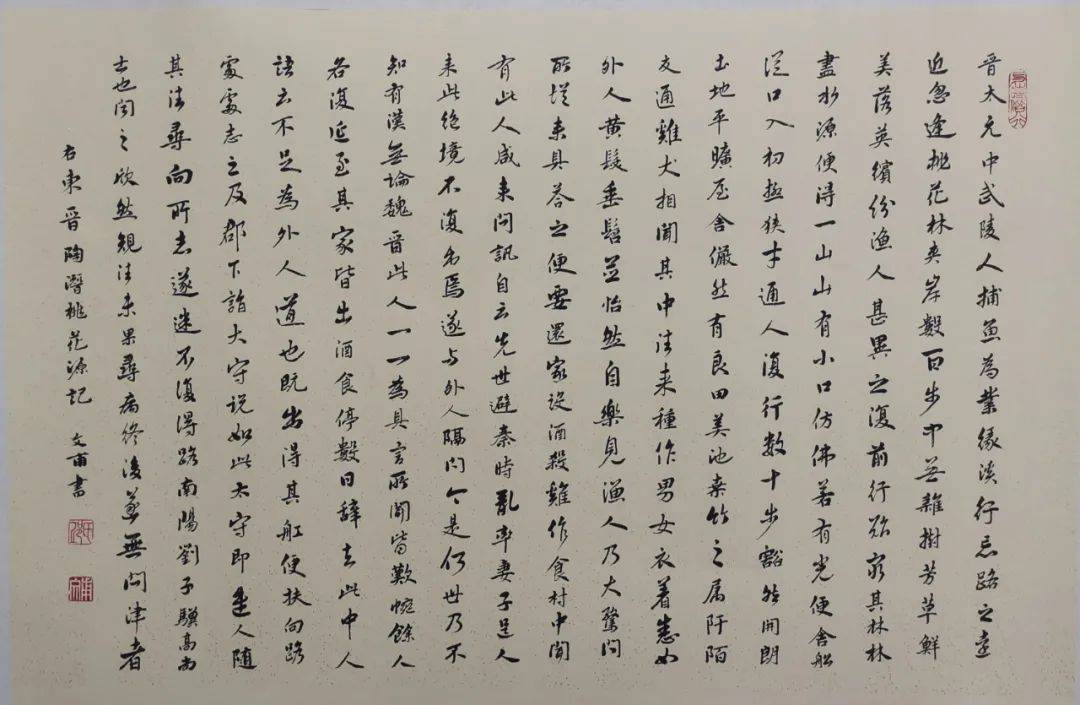 晋太元中武陵人捕魚為業緣溪行忘路之遠
近忽逢桃花林夾岸數百步中無雜樹芳草鮮
美落英繽紛漁人甚異之復前行欲窮其林林
盡水源便得一山山有小口仿佛若有光便舍船
從口入初極狹才通人復行数十步豁然開朗
土地平曠屋舍儼然有良田美池桑竹之属阡陌
交通雞犬相聞其中往来種作男女衣着悉如
外人黄髮垂髫並怡然自樂見漁人乃大驚問
所從来具答之便要還家设酒殺雞作食村中聞
有此人咸来問訊自云先世避秦時亂率妻子邑人
来此绝境不復出焉遂与外人隔問今是何世乃不
知有漢無論魏晋此人一一為具言所聞皆歎惋餘人
各復延至其家皆出酒食停數日辞去此中人
語云不足為外人道也既出得其舡便扶向路
處處志之及郡下詣大守说如此太守即遣人随
其往尋向所志遂迷不復得路南陽劉子驥高尚
士也聞之欣然規往未果尋病終後遂無問津者
右東晋陶潛桃花源記 文甫書